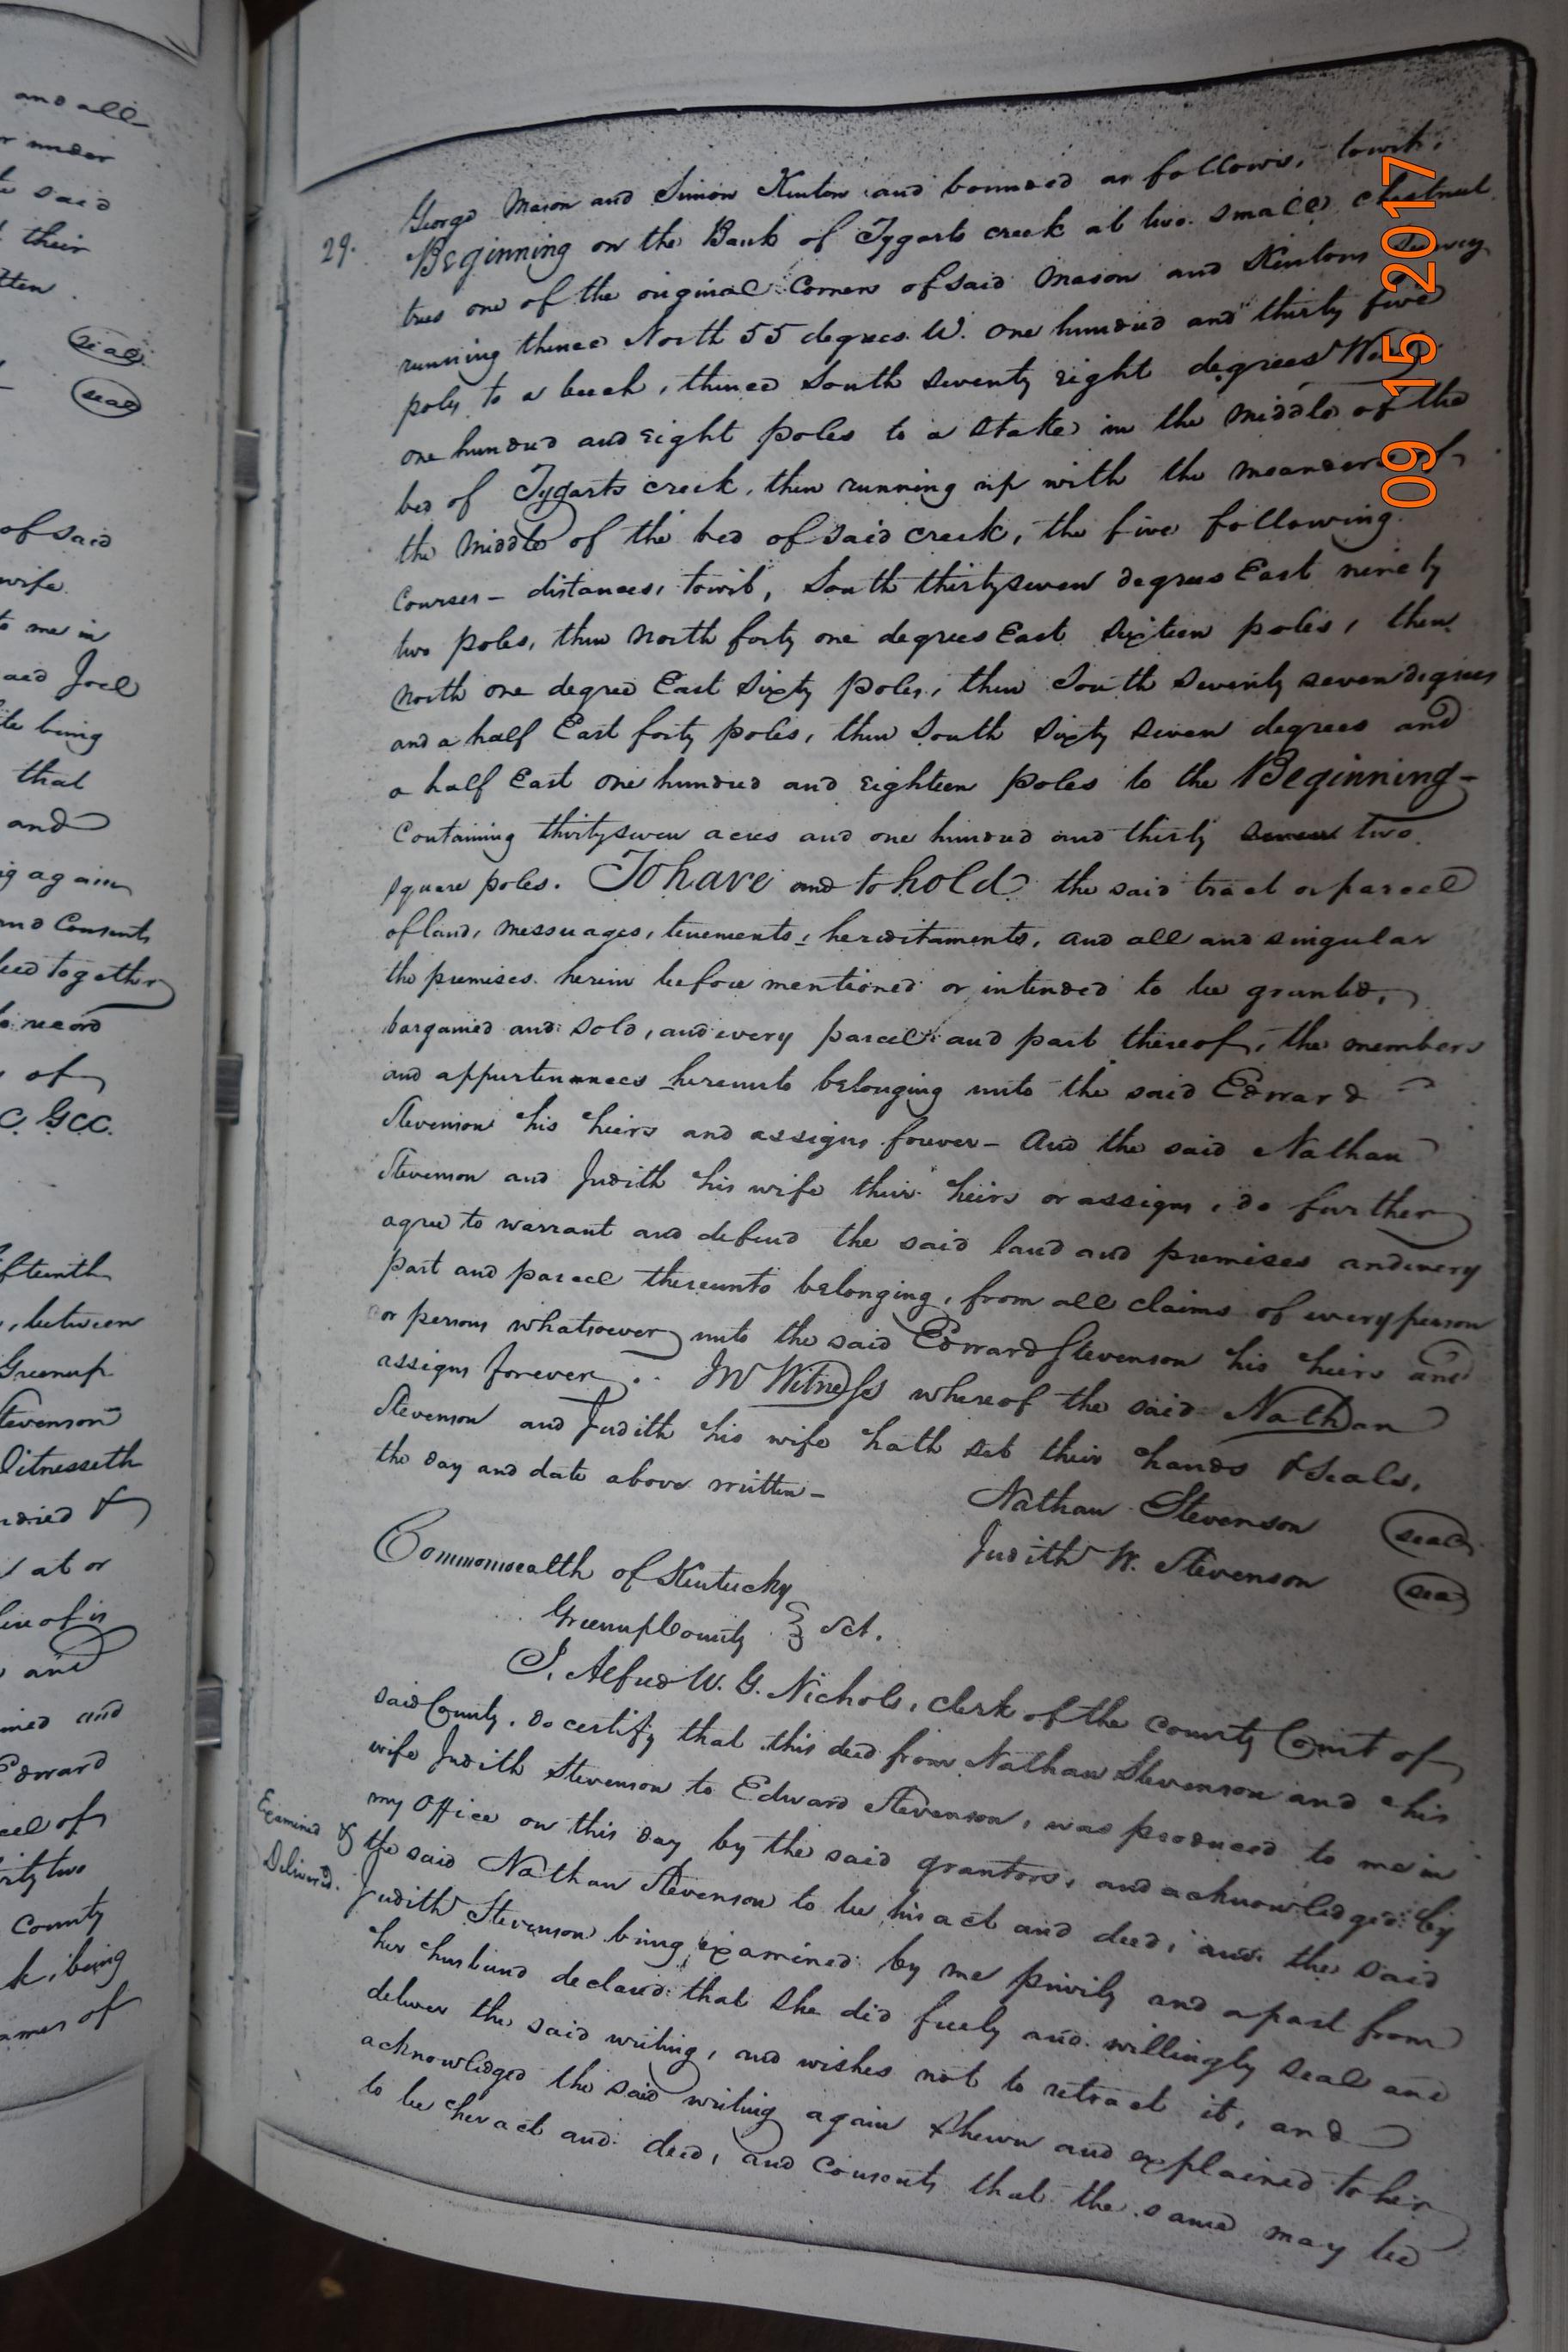 and all
r under
said
their
tten.
seal
seal
of said
wife
to me in
Joel
being
that
and
ng again
and Consents
together
record
of
C. GCC.
fteenth
, between
Greenup
tevenson
Witnesseth
&
at or
and
and
Edward
cel of
rty two
County
k, being
ames of
29.
George Mason and Simon Kenton and bounded as follows, towit,
Beginning on the Bank of Tygarts creek at two small chestnut
trees one of the original Corners of said Mason and Kentons survey
running thence North 55 degrees W. one hundred and thirty five
poles to a beech, thence South seventy eight degrees West
one hundred and eight poles to a stake in the middle of the
bed of Tygarts creek, then running up with the meanders of
the middle of the bed of said creek, the five following
Courses - distances, towit, South thirty seven degrees East ninety
two poles, then North forty one degrees East sixteen poles, then
North one degree East Sixty poles, then South Seventy seven degrees
and a half East forty poles, then South Sixty Seven degrees and
a half East one hundred and eighteen poles to the Beginning -
Containing thirty seven acres and one hundred and thirty seven two
square poles. To have and to hold the said tract or parcel
of land, messuages, tenements, hereditaments, and all and singular
the premises herein before mentioned or intended to be granted,
bargained and sold, and every parcel and part thereof, the members
and appurtenances hereunto belonging unto the said Edward
Stevenson his heirs and assigns forever - And the said Nathan
Stevenson and Judith his wife their heirs or assigns, do further
agree to warrant and defend the said land and premises and every
part and parcel thereunto belonging, from all claims of every person
or persons whatsoever unto the said Edward Stevenson his heirs and
assigns forever. In Witness whereof the said Nathan
Stevenson and Judith his wife hath set their hands & Seals,
the day and date above written -
Nathan Stevenson seal
Judith W. Stevenson seal
Commonwealth of Kentucky
Greenup County } Sct.
I, Alfred W. G. Nichols, clerk of the county Court of
said County, do certify that this deed from Nathan Stevenson and his
wife Judith Stevenson to Edward Stevenson, was produced to me in
my Office on this day by the said grantors, and acknowledged by
Examined &
Delivered.
the said Nathan Stevenson to be his act and deed, and the said
Judith Stevenson being examined by me privily and apart from
her husband declared that she did freely and willingly seal and
deliver the said writing, and wishes not to retract it, and
acknowledged the said writing again shewn and explained to her
to be her act and deed, and consents that the same may be
09 15 2017